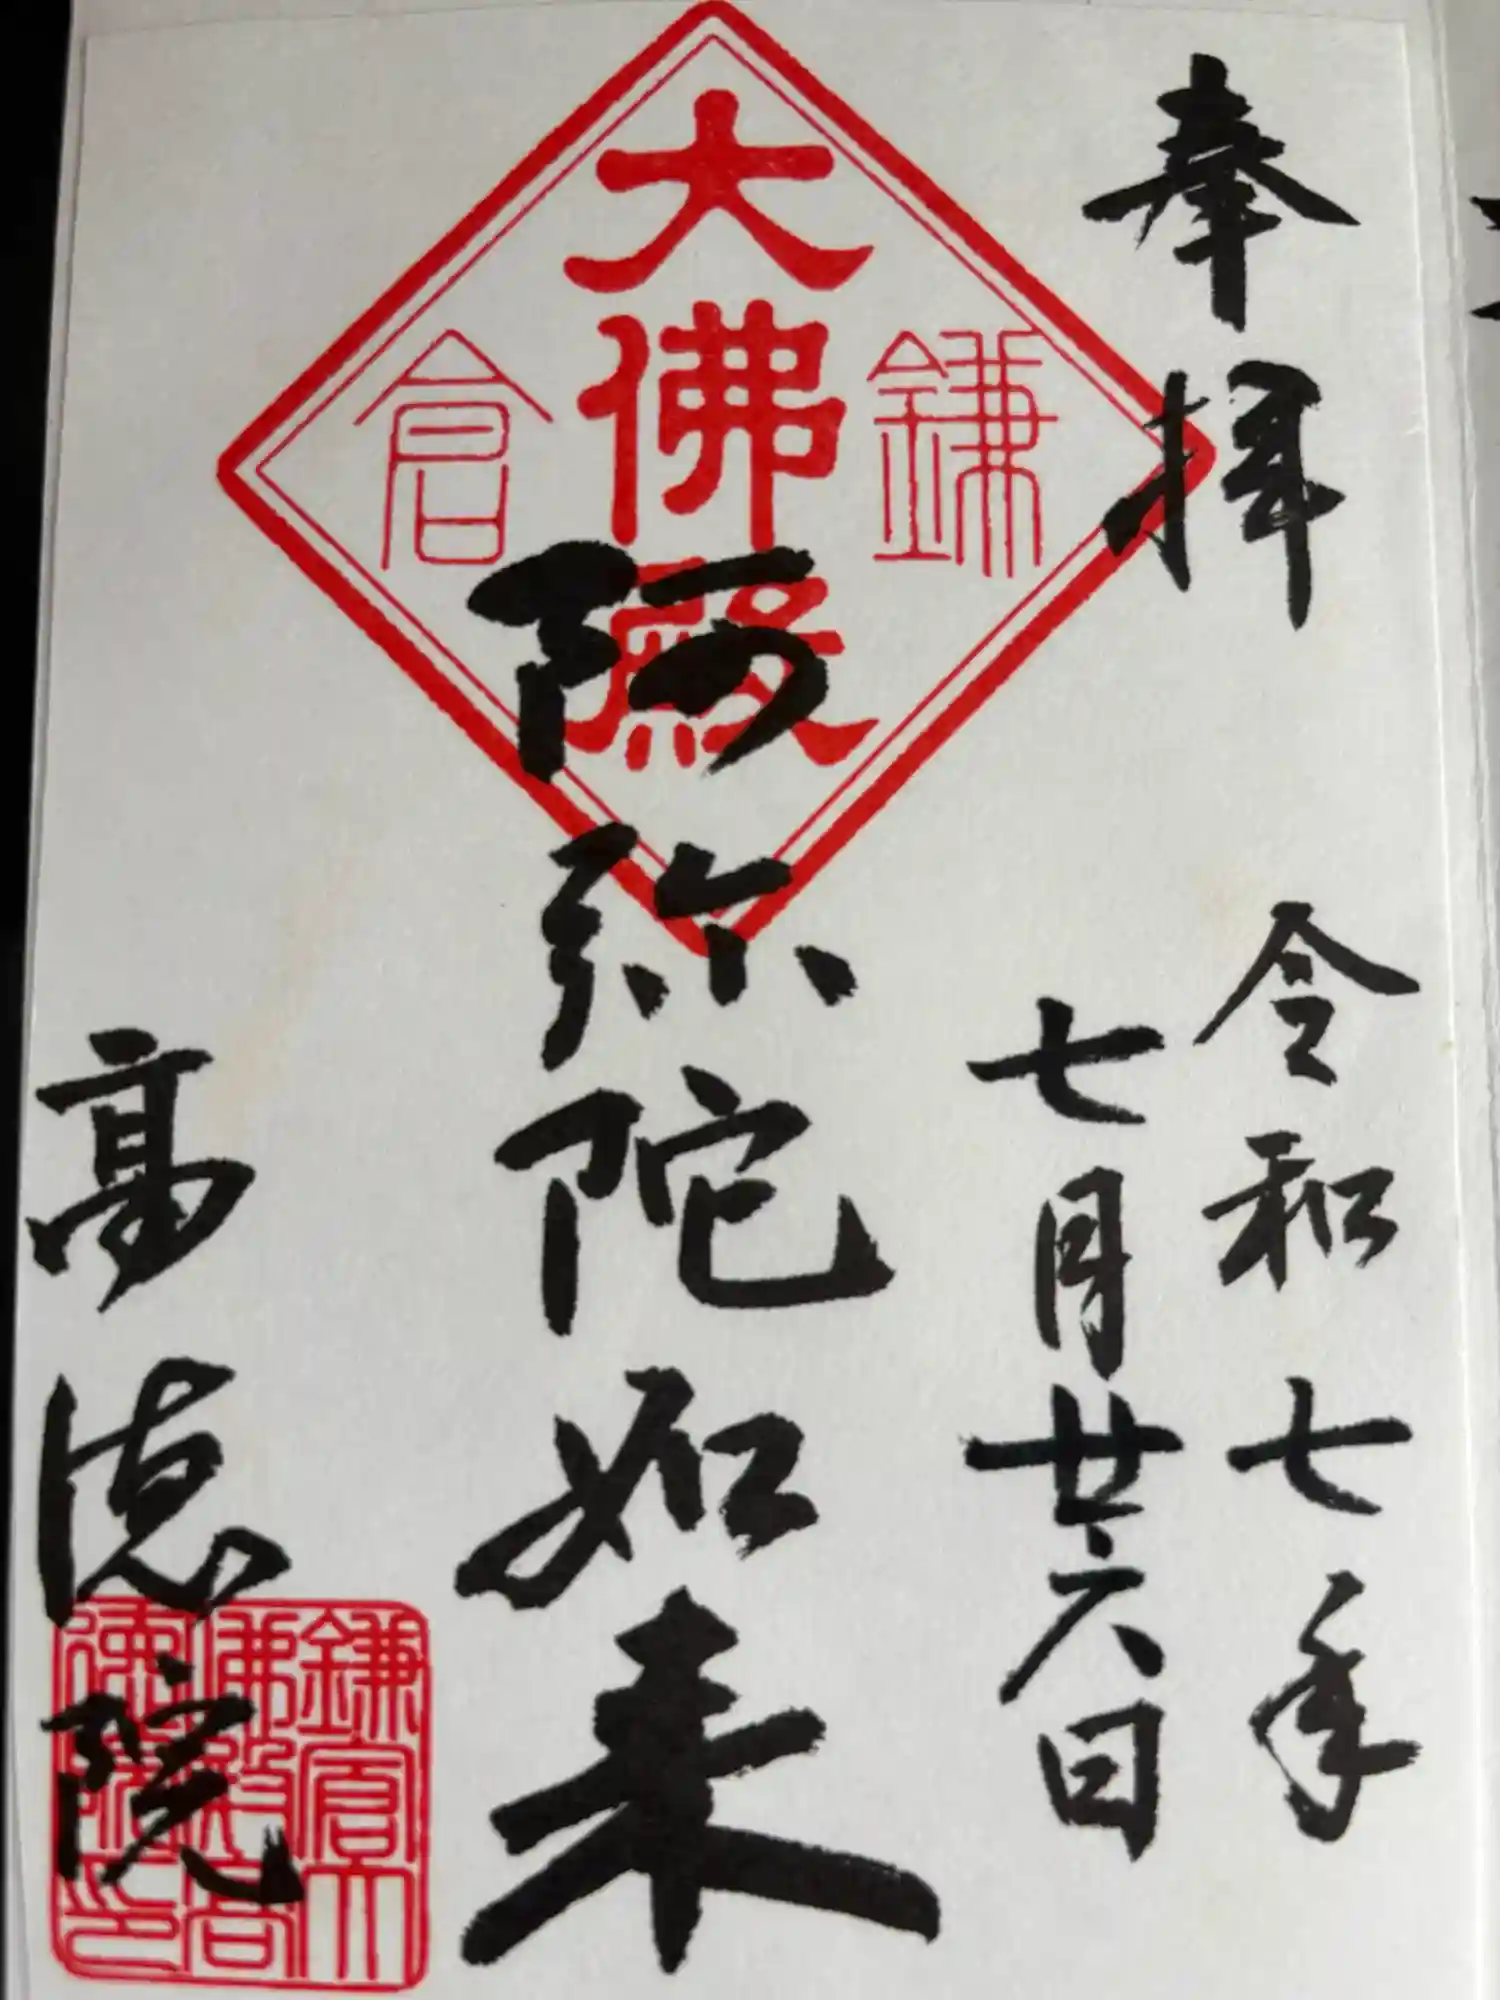 奉拝
令和七年
七月廿六日
鎌倉
大佛殿
阿弥陀如来
高徳院
鎌倉大
佛殿高
徳院印